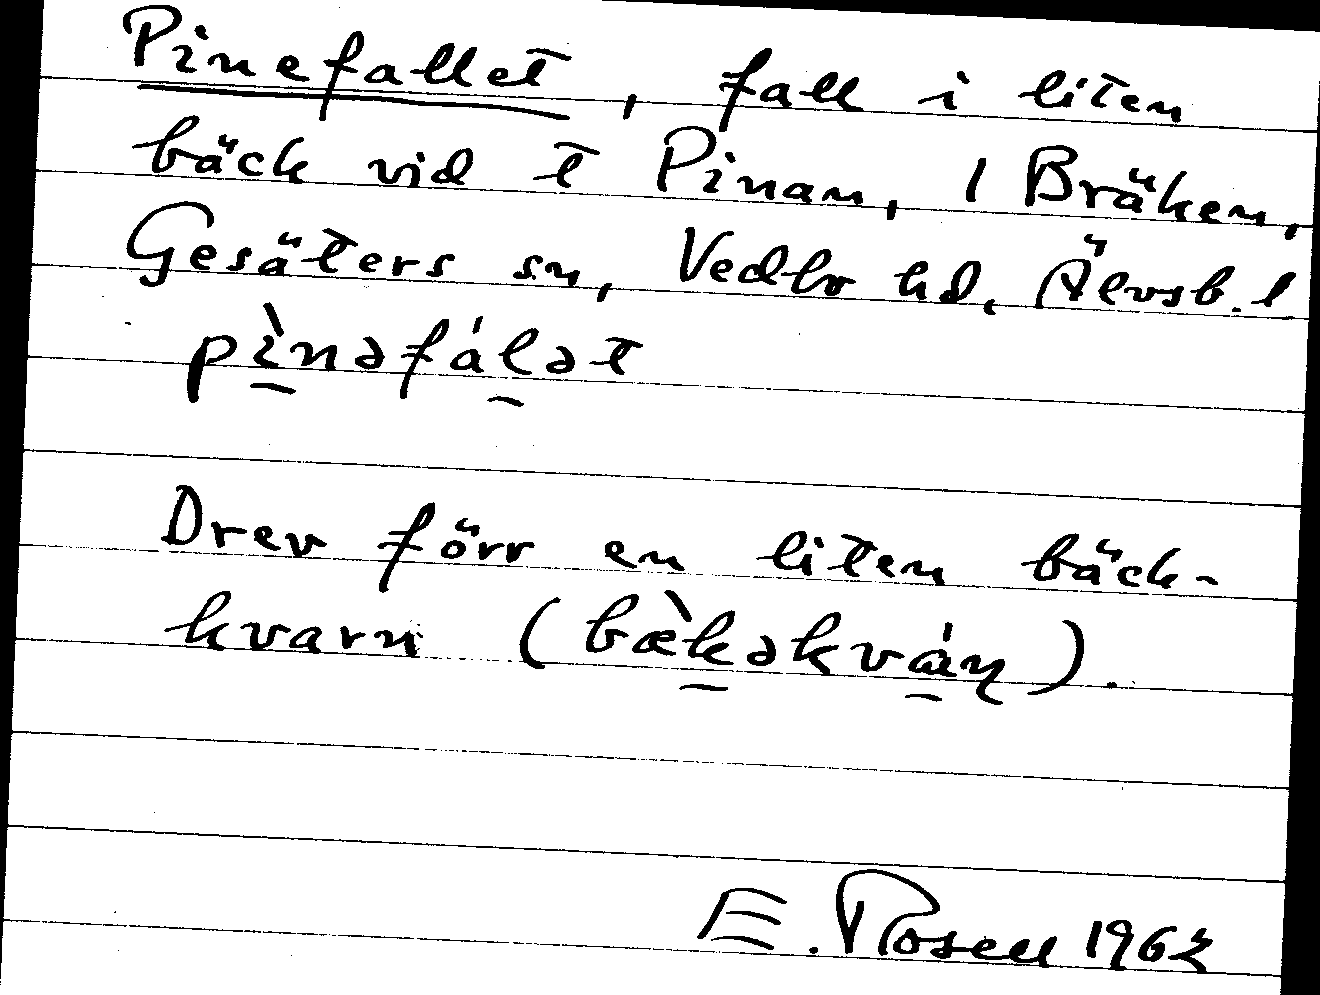 Pinefallet, fall i liten
bäck vid t Pinan, 1 Bräken,
Gesäters sn, Vedbo hd, Älvsb. l
pìnəfálət
Drev förr en liten bäck-
kvarn (bæ̀kəkváɳ).
E. Rosell 1962